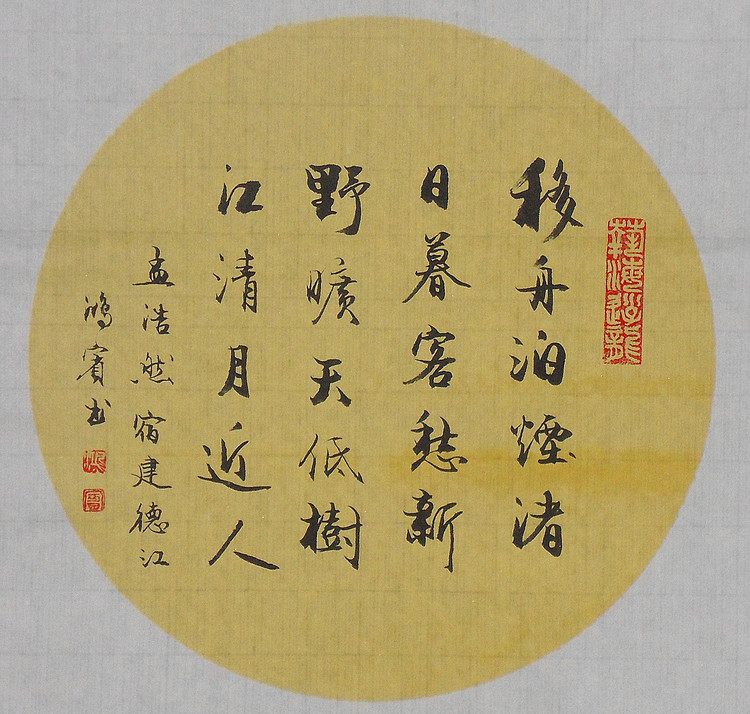 移舟泊煙渚
日暮客愁新
野曠天低樹
江清月近人
孟浩然宿建德江
鴻賓書